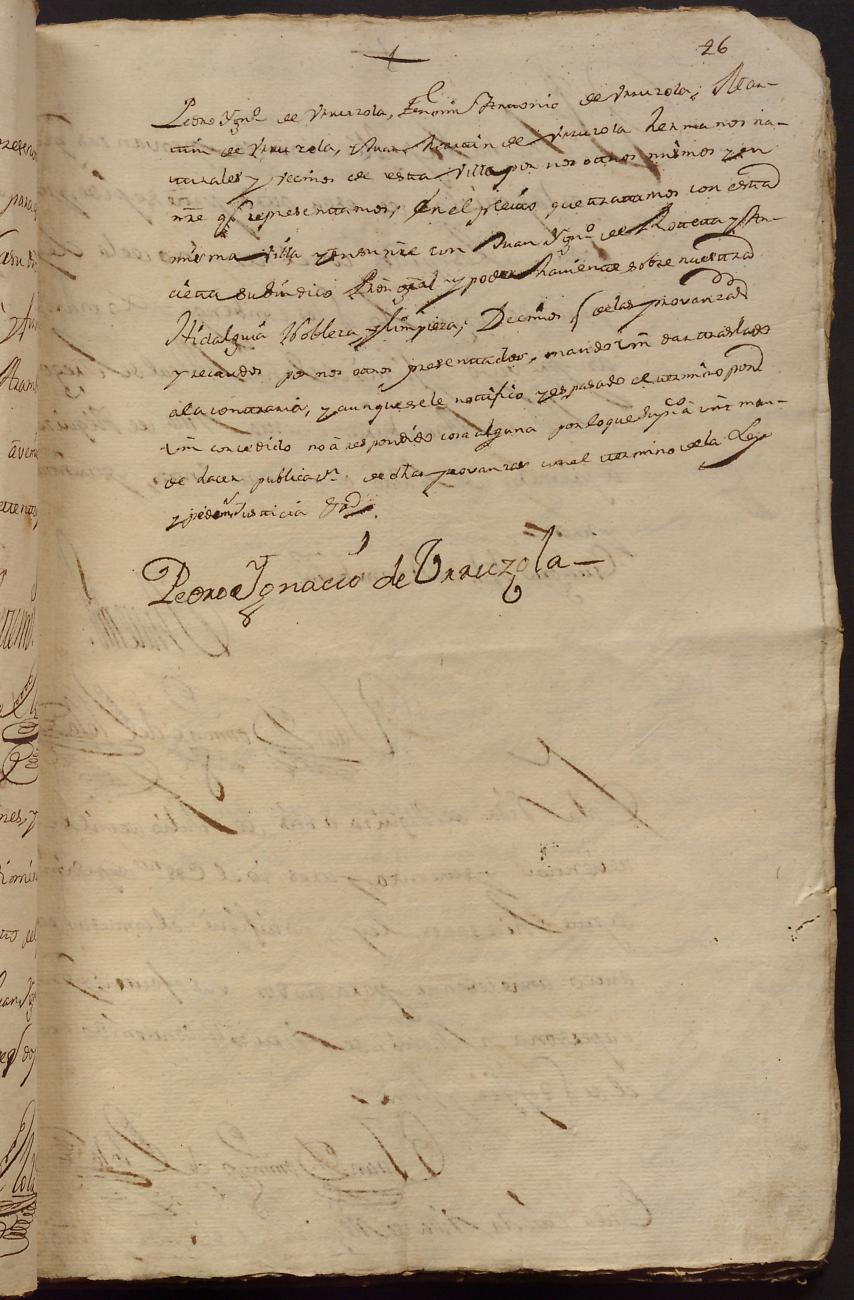 26
Pedro Ygn.º de Vrruzola, Antonio de Vrruzola, Mar-
tin de Vrruzola, y Juan Martin de Vrruzola hermanos na-
turales y vecinos de esta Villa por nos otros mismos y en
nre q.e representamos, En el pleito que tratamos con esta
misma Villa y en su nre con Juan Ygn.º de
cieta su Sindico Pro.r gral y poder haviente sobre nuestra
Hidalguia Nobleza, y limpieza; Decimos q de las provanzas
y recaudos por nos otros presentados, mando Vm dar traslado
ala contraria, y aunque se le notifico y es pasado el termino por
Vm concedido no à respondido cosa alguna por lo que sup.co à Vm man-
de hacer publicac.on de dhas provanzas con el termino de la Ley
y pedimos Justicia &a
Pedro Ygnacio de Vrruzola